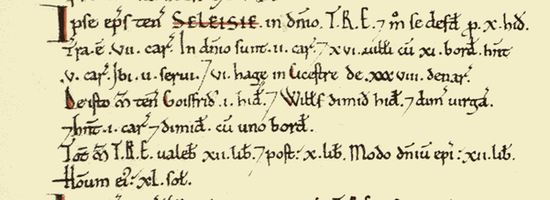 Ipse ep̃s ten̄ SELEISIE. in dn̄io. T.R.E. ⁊ m̊ se defd̄ p̱. x. hid̄.
Tra.ē. vii. car̃. In dn̄io sunt. ii. car̃. ⁊ xvi. uilli cū xi. bord̄. hn̄t
.v. car̃. Ibi. ii. serui. ⁊ vi. hagę in Cicestre de. xxxviii. denar̃.
De isto m̄ ten̄ Goisfrid̄. i. hid̄. ⁊ Will̃s dimid̄ hid̄. ⁊ dim̄ uirgā.
⁊ hn̄t. i. car̃ ⁊ dimid̄. cū uno bord̄.
Tot̄ m̄ T.R.E. valeb̄ xii. lib̄. ⁊ post: x. lib̄. Modo dn̄iū ep̄i: xii. lib̄.
Hōum ei': xl. sol̄.